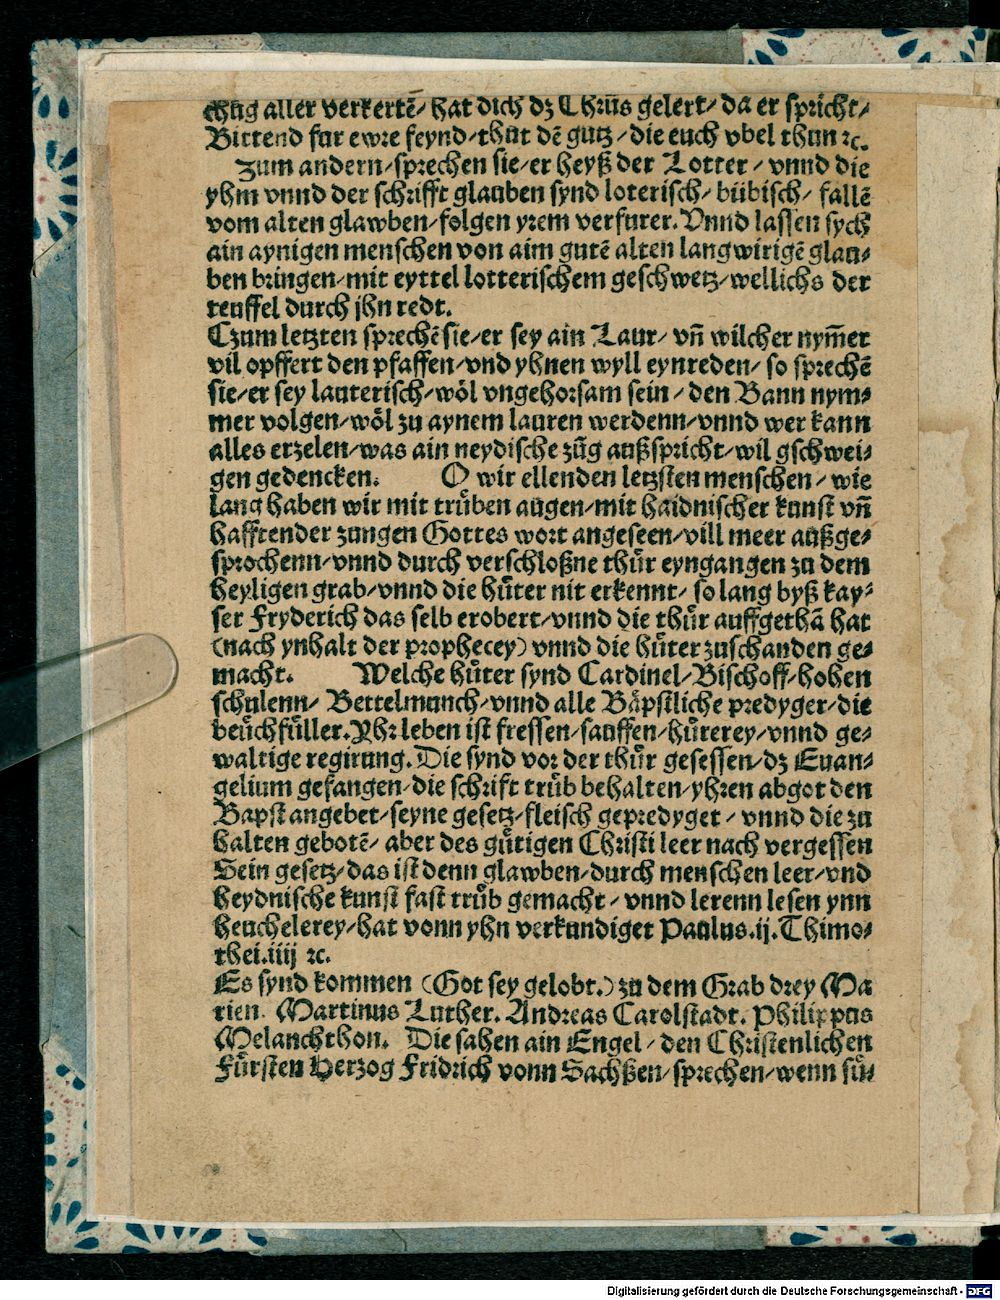 aller verkertē/ hat dich dz Chrūs gelert/ da er spricht/
Bittend fur ewre feynd/ thüt dē gutz/ die euch vbel thun ꝛc.
Zum andern/ sprechen sie/ er heyß der Lotter/ vnnd die
yhm vnnd der schrifft glauben synd loterisch/ bübisch/ fallē
vom alten glawben/ folgen yrem verfurer. Vnnd lassen sych
ain aynigen menschen von aim gutē alten langwirigē glau⸗
ben bringen/ mit eyttel lotterischem geschwetz/ wellichs der
teuffel durch jhn redt.
Czum letzten sprechē sie/ er sey ain Laur/ vn̄ wilcher nym̄er
vil opffert den pfaffen/ vnd yhnen wyll eynreden/ so sprechē
sie/ er sey lauterisch/ wöl vngehorsam sein/ den Bann nym⸗
mer volgen/ wöl zu aynem lauren werdenn/ vnnd wer kann
alles erzelen/ was ain neydische zūg außspricht/ wil gschwei⸗
gen gedencken. O wir ellenden letzsten menschen/ wie
lang haben wir mit trüben augen/ mit haidnischer kunst vn̄
hafftender zungen Gottes wort angeseen/ vill meer außge⸗
sprochenn/ vnnd durch verschloßne thür eyngangen zu dem
heyligen grab/ vnnd die hüter nit erkennt/ so lang byß kay⸗
ser Fryderich das selb erobert/ vnnd die thür auffgethā hat
(nach ynhalt der prophecey) vnnd die hüter zuschanden ge⸗
macht. Welche hüter synd Cardinel/ Bischoff/ hohen
schulenn/ Bettelmunch/ vnnd alle Bäpstliche predyger/ die
beüchfüller. Yhr leben ist fressen/ sauffen/ hürerey/ vnnd ge⸗
waltige regirung. Die synd vor der thür gesessen/ dz Euan⸗
gelium gefangen/ die schrift trüb behalten/ yhren abgot den
Bapst angebet/ seyne gesetz/ fleisch gepredyget/ vnnd die zu
halten gebotē/ aber des gütigen Christi leer nach vergessen
Sein gesetz/ das ist denn glawben/ durch menschen leer/ vnd
heydnische kunst fast trüb gemacht/ vnnd lerenn lesen ynn
heuchelerey/ hat vonn yhn verkundiget Paulus.ij.Thimo⸗
thei.iiij ꝛc.
Es synd kommen (Got sey gelobt.) zu dem Grab drey Ma
rien. Martinus Luther. Andreas Carolstadt. Philippus
Melanchthon. Die sahen ain Engel/ den Christenlichen
Fürsten Hertzog Fridrich vonn Sachßen/ sprechen/ wenn sü⸗
Digitalisierung gefördert durch die Deutsche Forschungsgemeinschaft - DFG